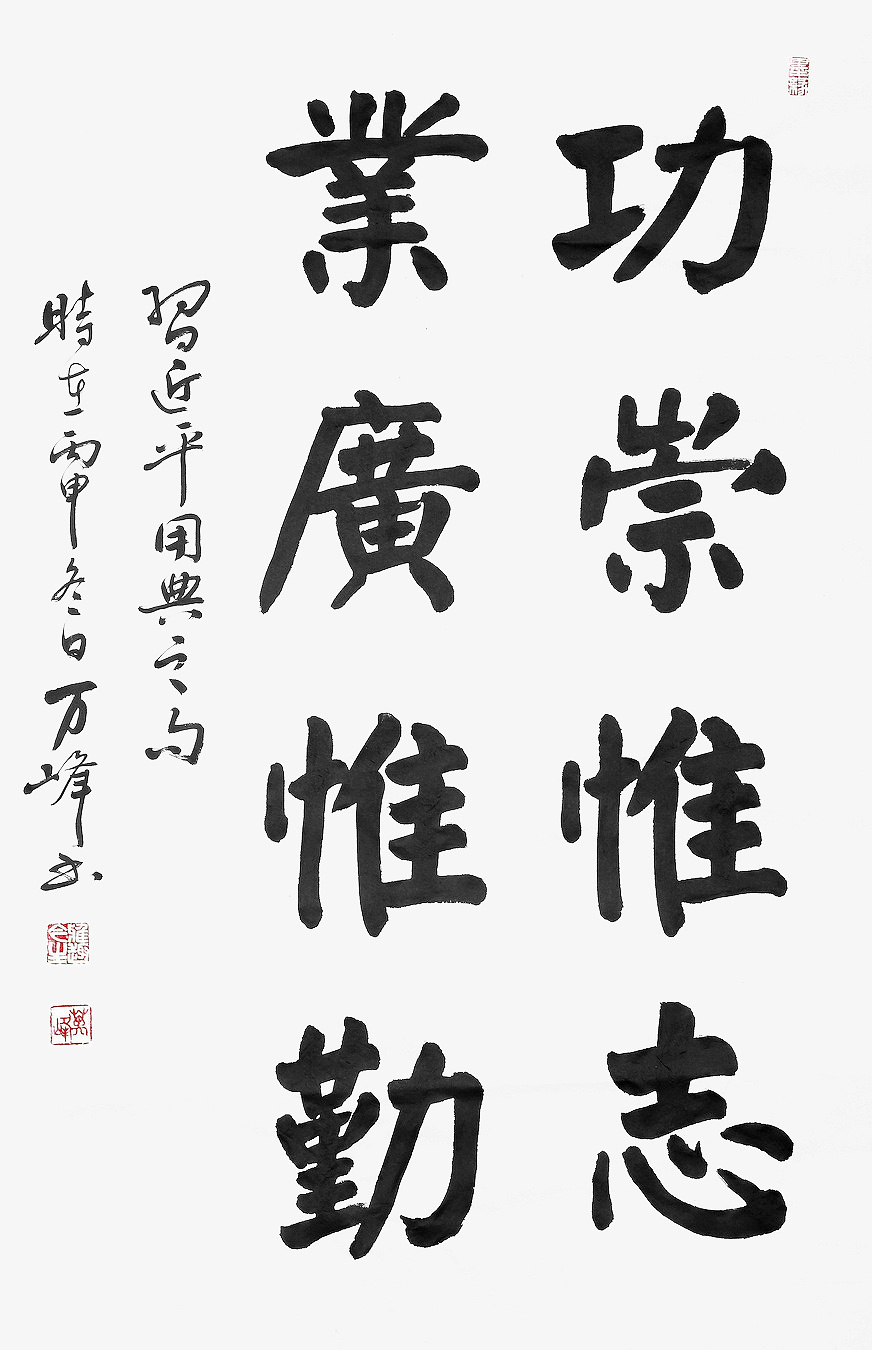 功崇惟志
業廣惟勤
習近平用典之句
時在丙申冬日万峰书
萬峰